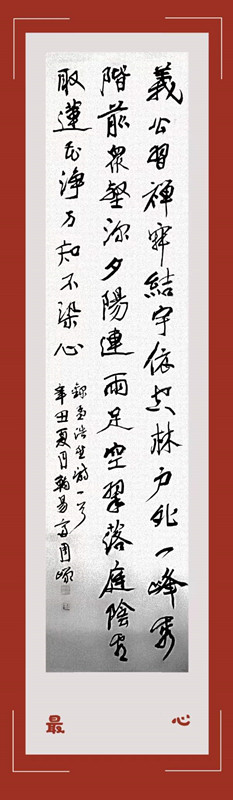 義公習禪寂結宇依空林户外一峰秀
階前衆壑深夕陽連雨足空翠落庭陰看
取蓮花淨方知不染心
録孟浩然詩一首
辛丑夏月
最
心